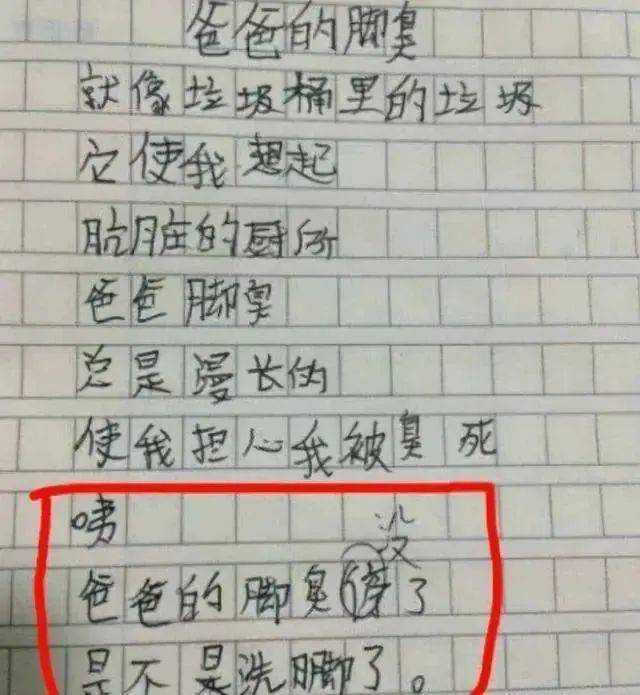 爸爸的脚臭
就像垃圾桶里的垃圾
它使我想起
肮脏的厨所
爸爸脚臭
总是漫长的
使我担心我被臭死
咦
爸爸的脚臭没了
是不是洗脚了。